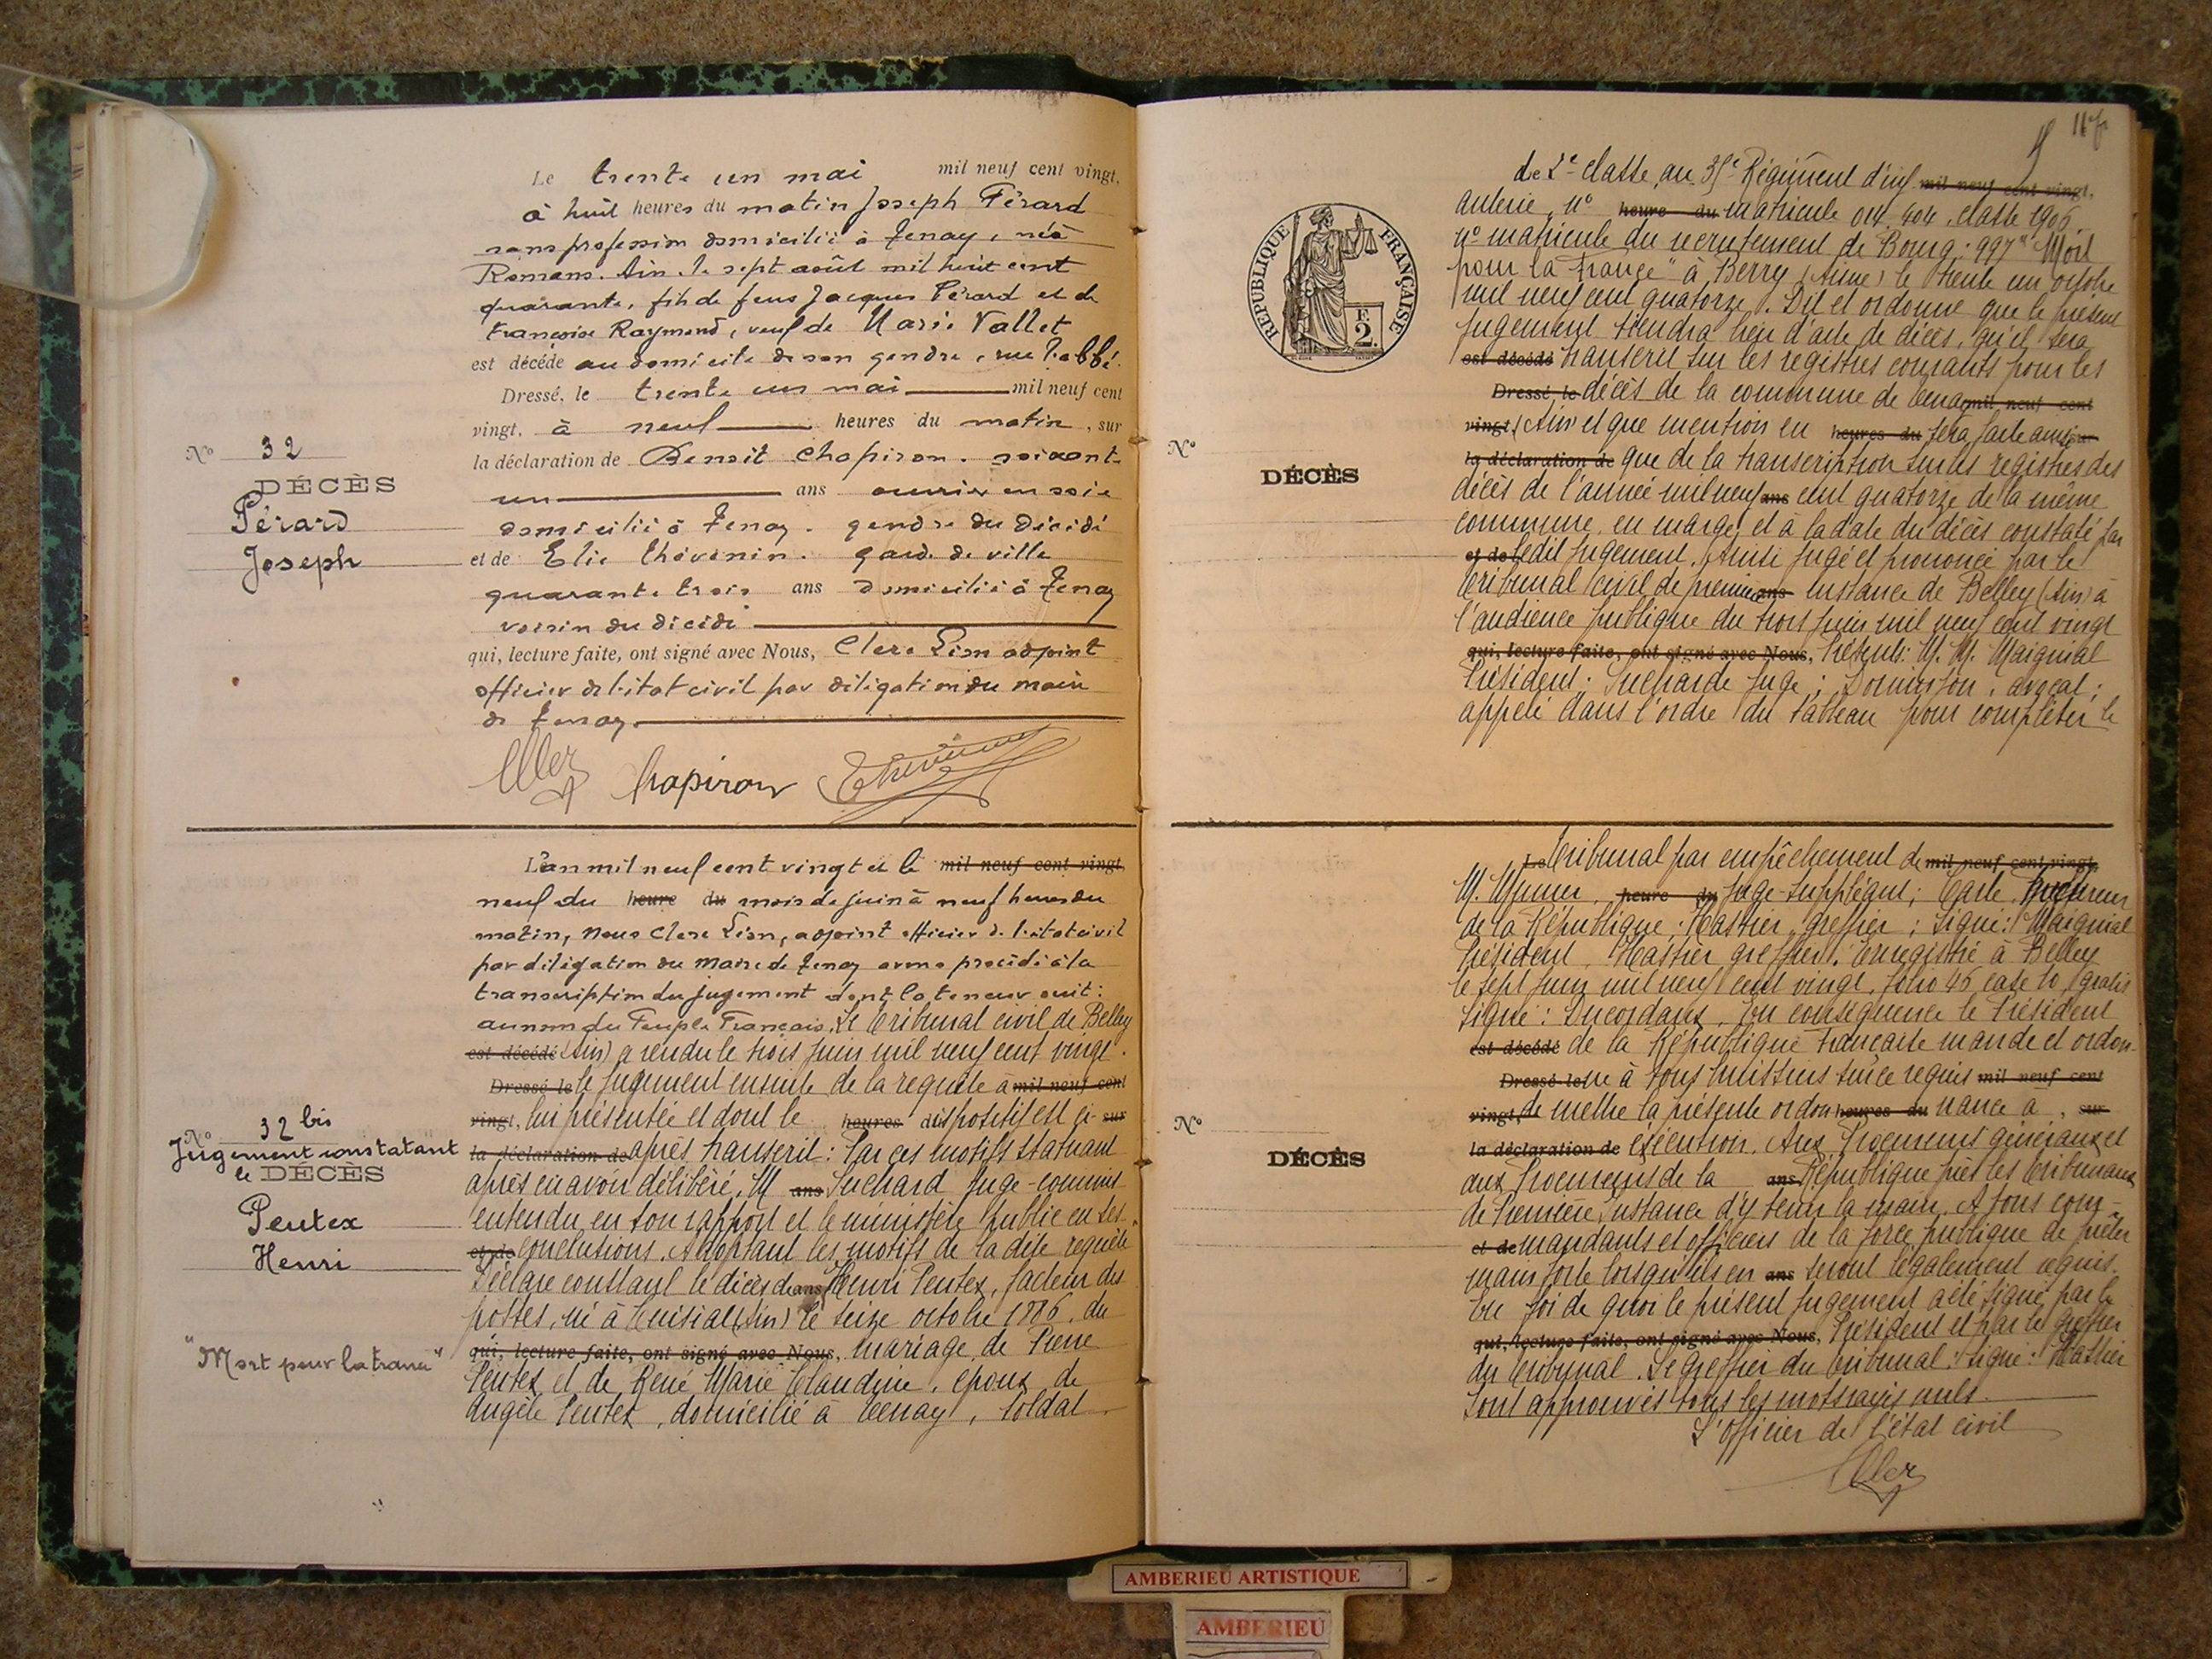 Le trente un mai mil neuf cent vingt,
à huit heures du matin Joseph Pérard
sans profession domicilié à Tenay, né à
Romans. Ain. le sept août mil huit cent
quarante, fils de feus Jacques Pérard et de
Françoise Raymond, veuf de Marie Vallet
est décédé au domicile de son gendre, rue l'abbé.
Dressé, le trente un mai mil neuf cent
vingt, à neuf heures du matin, sur
la déclaration de Benoit Chapiron. soixante
un ans ouvrier en soie
domicilié à Tenay. gendre du décédé
et de Elie Thévenin. garde de ville
quarante trois ans domicilié à Tenay
voisin du décédé
qui, lecture faite, ont signé avec Nous, Clerc Léon adjoint
officier de l'état civil par délégation du maire
de Tenay.
Chapiron
Nº 32
DÉCÈS
Pérard
Joseph
L'an mil neuf cent vingt et le mil neuf cent vingt,
neuf du heure du mois de juin à neuf heures du
matin, Nous Clerc Léon, adjoint officier de l'état civil
par délégation du Maire de Tenay avons procédé à la
transcription du jugement dont la teneur suit:
au nom du Peuple Français. Le Tribunal civil de Belley
est décédé (Ain) a rendu le trois juin mil neuf cent vingt.
Dressé le le jugement ensuite de la requête à mil neuf cent
vingt, lui présentée et dont le heures dispositif est ci- sur
la déclaration de après transcrit: Par ces motifs statuant
après en avoir délibéré, M ans Suchard juge-commis
entendu en son rapport et le ministère public en ses
et de conclusions. Adoptant les motifs de la dite requête
Déclare constant le décès de ans Henri Peutex, facteur des
postes, né à (Ain) le seize octobre 1886, du
qui, lecture faite, ont signé avec Nous, mariage de Pierre
Peutex et de René Marie Claudine, époux de
Angèle Peutex, domicilié à Tenay, soldat
Nº 32 bis
Jugement constatant
le DÉCÈS
Peutex
Henri
"Mort pour la France"
de 2e classe au Régiment d'inf mil neuf cent vingt,
anterie, nº heure du matricule 404, classe 1906
nº matricule du recrutement de Bourg: 997 "Mort
pour la France" à Berry (Aisne) le trente un octobre
mil neuf cent quatorze. Dit et ordonne que le présent
jugement tiendra lieu d'acte de décès, qu'il sera
est décédé transcrit sur les registres courants pour les
Dressé, le décès de la commune de Tenay mil neuf cent
vingt, (Ain) et que mention en heures du sera faite ainsi sur
la déclaration de que de la transcription sur les registres des
décès de l'année mil neuf ans cent quatorze de la même
commune en marge, et à la date du décès constaté par
et de ledit jugement. Ainsi jugé et prononcé par le
Tribunal civil de première ans instance de Belley (Ain) à
l'audience publique du trois juin mil neuf cent vingt
qui, lecture faite, ont signé avec Nous, Présents: M. M. Maignial
Président; juge; avocat;
appelé dans l'ordre du tableau pour compléter le
RÉPUBLIQUE FRANÇAISE
F.
2.
Nº
DÉCÈS
Le Tribunal par empêchement de mil neuf cent vingt,
M. heure du juge-suppléant; Procureur
de la République; Hastier greffier; Signé: Maignial
Président, Hastier greffier. Enregistré à Belley
le sept juin mil neuf cent vingt, folio 46 case 10, gratis
Signé: En conséquence le Président
est décédé de la République Française mande et ordon-
Dressé le ne à tous huissiers sur ce requis mil neuf cent
vingt, de mettre la présente ordon heures du nance à , sur
la déclaration de exécution. Aux Procureurs généraux et
aux Procureurs de la ans République près les Tribunaux
de Première Instance d'y tenir la main. A tous com-
et de mandants et officiers de la force publique de prêter
main forte lorsqu'ils en ans seront légalement requis.
En foi de quoi le présent jugement a été signé par le
qui, lecture faite, ont signé avec Nous, Président et par le greffier
du Tribunal. Le greffier du Tribunal: signé: Hastier
Sont approuvés tous les mots rayés nuls.
L'Officier de l'état civil
Nº
DÉCÈS
AMBERIEU ARTISTIQUE
AMBERIEU